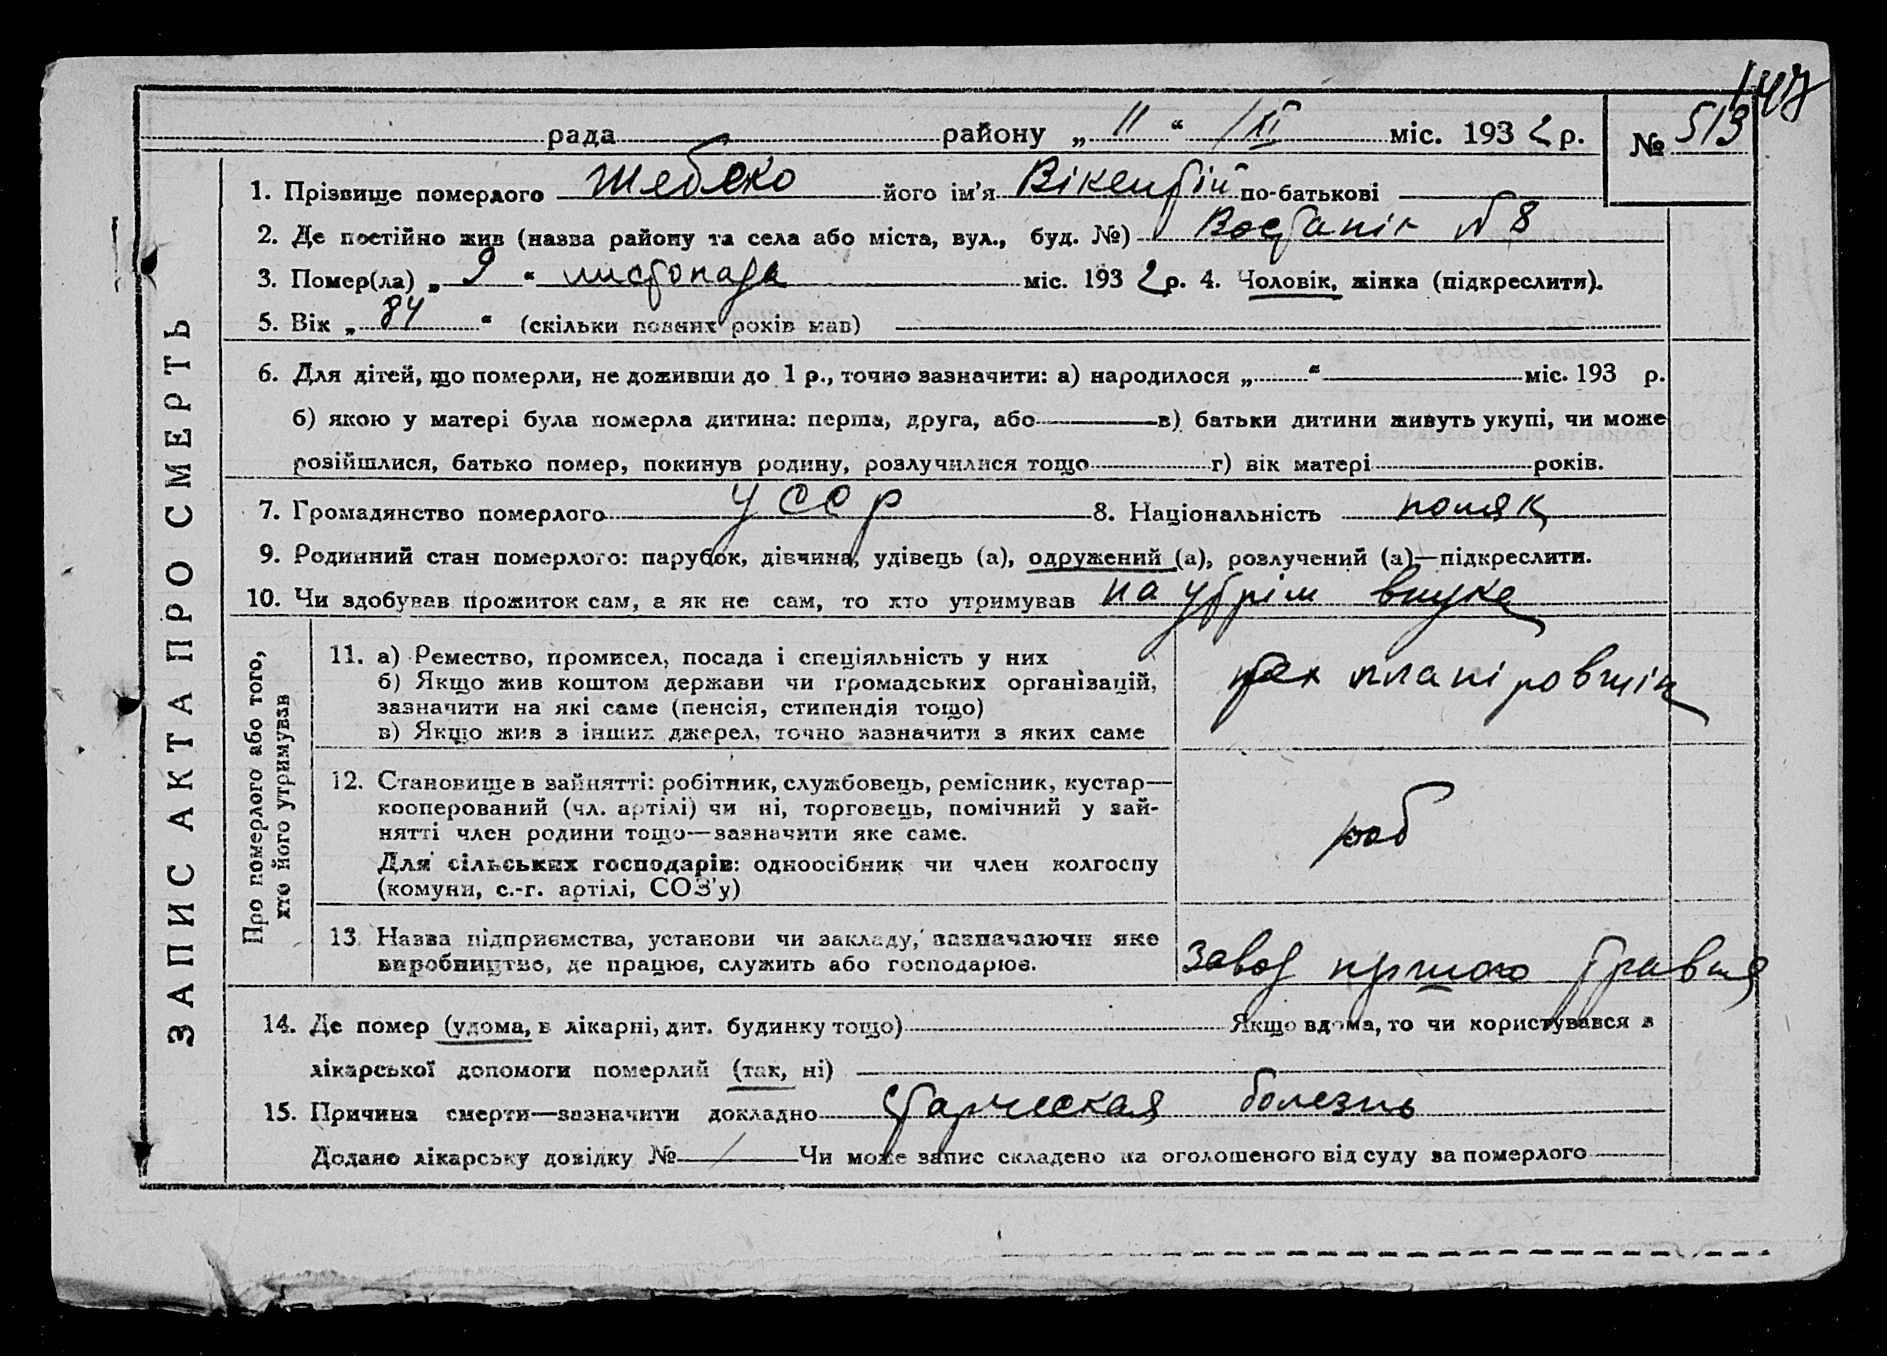 147
рада районуˮ „ 11 “ /XI міс. 1932 р. № 513
1. Прізвище померлого Жебеко його ім'я Вікентій по-батькові
2. Де постійно жив (назва району та села або міста, вул., буд. №) Востаніє № 8
3. Помер(ла) „ 9 “ листопада міс. 1932 р. 4. Чоловік, жінка (підкреслити).
5. Вік „ 84 “ (скільки повних років мав)
6. Для дітей, що померли, не доживши до 1 р., точно зазначити: а) народилося „ “ міс. 193 р.
б) якою у матері була померла дитина: перша, друга, або в) батьки дитини живуть укупі, чи може
розійшлися, батько помер, покинув родину, розлучилися тощо г) вік матері років.
7. Громадянство померлого УССР 8. Національність поляк
9. Родинний стан померлого: парубок, дівчина, удівець (а), одружений (а), розлучений (а)—підкреслити.
10. Чи здобував прожиток сам, а як не сам, то хто утримував на утрім внука
ЗАПИС АКТА ПРО СМЕРТЬ
Про померлого або того,
хто його утримував
11. а) Ремество, промисел, посада і спеціяльність у них
б) Якщо жив коштом держави чи громадських організацій,
зазначити на які саме (пенсія, стипендія тощо)
в) Якщо жив з інших джерел, точно зазначити з яких саме
планіровщік
12. Становище в зайнятті: робітник, службовець, ремісник, кустар—
кооперований (чл. артілі) чи ні, торговець, помічний у зай-
нятті член родини тощо—зазначити яке саме.
Для сільських господарів: одноосібник чи член колгоспу
(комуни, с.-г. артілі, СОЗ'у)
роб
13. Назва підприємства, установи чи закладу, зазначаючи яке
виробництво, де працює, служить або господарює.
завод першого травня
14. Де помер (удома, в лікарні, дит. будинку тощо) Якщо вдома, то чи користувався з
лікарської допомоги померлий (так, ні)
15. Причина смерти—зазначити докладно старческая болезнь
Додано лікарську довідку № / Чи може запис складено на оголошеного від суду за померлого